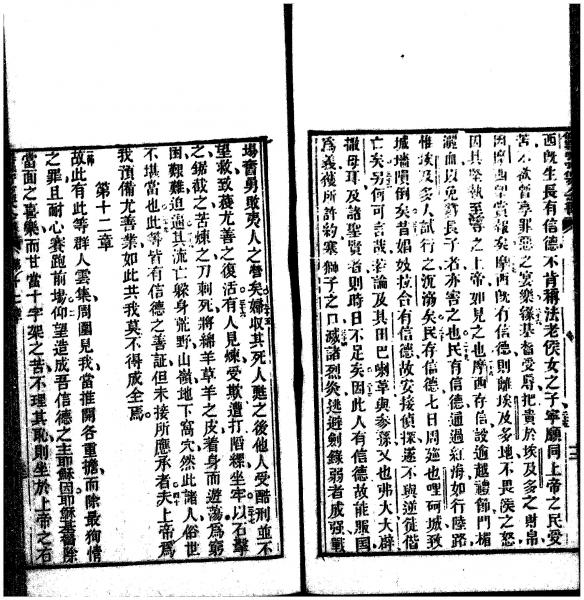 西旣生長有信德不肯稱法老侯女之子寧願同上帝之民受
苦不欲暫享罪惡之宴樂蓋基督受辱把貴於埃及多之財帛
因摩西仰賞報矣摩西旣有信德則離埃及多地不畏侯之怒
因其堅執至善之上帝如見之也摩西存信設逾越禮飾門楣
灑血以免斃長子者亦害之也民有信德通過紅海如行陸路
惟埃及多人試行之沉溺矣民存信德七日周𢌞也哩城致
城墻隕倒矣昔娼妓接合有信德故安接偵探遂不與逆徒偕
亡矣另何可言哉若論及其田巴喇草與參孫又也弗大大辟
撒母耳及諸聖賢者則時日不足矣因此人有信德故能服國
爲義獲所許約塞獅子之口滅諸烈炎逃避劍鋒弱者成强戰
場奮勇敢夷人之營矣婦收其死人甦之後他人受酷刑並不
望救致獲尤善之復活有人見煉受欺遭打陷縲坐牢以石擊
之鋸截之苦煉之刀刺死將綿羊草羊之皮着身而遊蕩爲窮
困艱難迫逼其流亡躱身荒野山嶺地下窩穴然此諸人俗世
不堪當也此等皆有信德之善証但未接所應承者夫上帝爲
我預備尤善業如此共我莫不得成全焉
第十二章
故此有此等群人雲集周圍見我當推開各重擔而除最狥情
之罪且耐心賽跑前場仰望造成吾信德之主耶穌因耶穌基督除
當面之喜樂而甘當十字架之苦不理其恥則坐於上帝之右